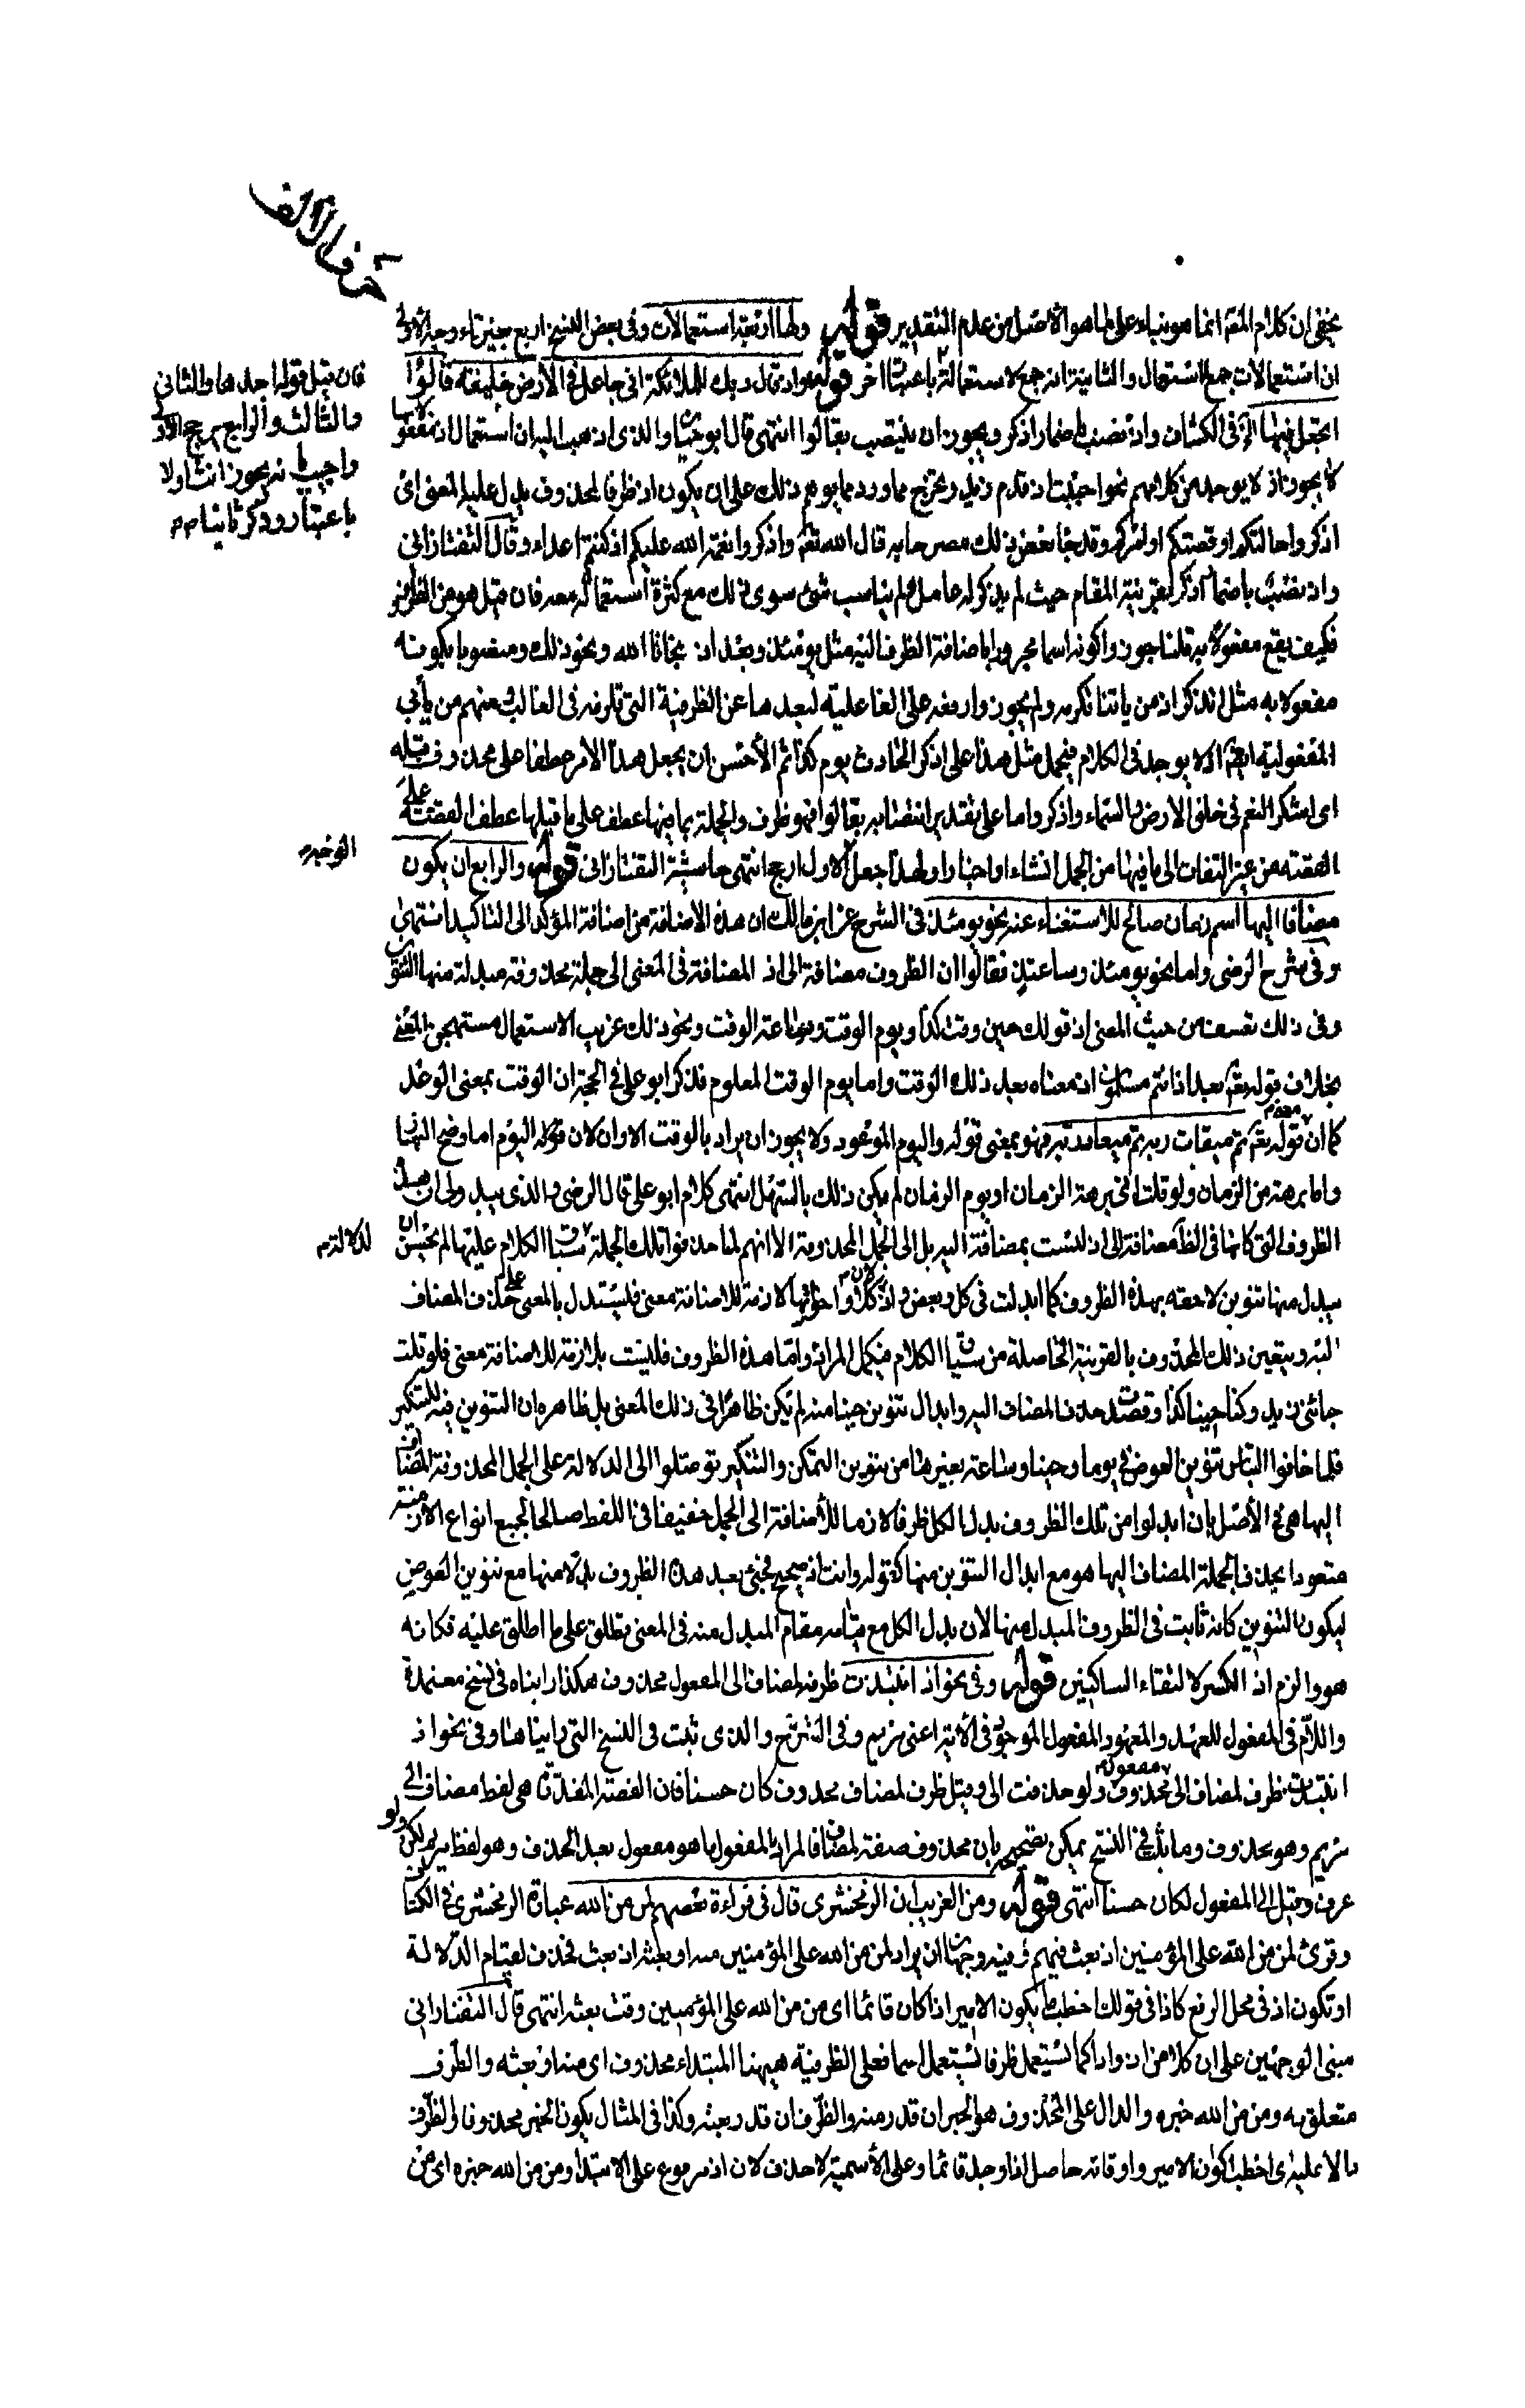 حرف الالف
يخفى ان كلام المصـ انما هو بناء على ما هو الاصل من عدم التقدير قوله ولها اربعة استعمالات وفى بعض النسخ اربع بغير تاء وجه الاولى
ان استعمالات جمع استعمال والثانية انه جمع لاستعمالة باعتبار اخر قوله واذ قال ربك للملائكة انى جاعل فى الارض خليفة قالوا
اتجعل فيها الخ فى الكشاف واذ نصب باضمار اذكر ويجوز ان ينتصب بقالوا انتهى قال ابو حيان والذى اذهب اليه ان استعمال اذ مفعولا بها
لا يجوز اذ لا يوجد من كلامهم نحو احببت اذ قدم زيد ويخرج ما ورد مما يوهم ذلك على ان يكون اذ ظرفا لمحذوف يدل عليه المعنى اى
اذكروا حالتكم او قصتكم او امركم وقد جاء بعض ذلك مصرحا به قال الله تعـ واذكروا نعمة الله عليكم اذ كنتم اعداء وقال التفتازانى
واذ نصب باضمار اذكر لقرينة المقام حيث لم يذكر له عامل ولم يناسب شئ سوى ذلك مع كثرة استعماله معه فان قيل هو من الظروف
فكيف يقع مفعولا به قلنا جوزوا كونه اسما مجرورا باضافة الظرف اليه مثل يومئذ وبعد اذ نجانا الله ونحو ذلك ومنصوبا بكونه
مفعولا به مثل اتذكر اذ من ياتنا نكرمه ولم يجوزوا رفعه على الفاعلية لبعدها عن الظرفية التى تلزمه فى الغالب ومنهم من يأبى
المفعولية ايضا اذ لا يوجد فى الكلام فيحمل مثل هذا على اذكر الحادث يوم كذا ثم الأحسن ان يجعل هذا الامر عطفا على محذوف قبله
اى اشكر النعم فى خلق الارض والسماء واذكر واما على تقدير انتصابه بقالوا فهو ظرف والجملة بما فيها عطف على ما قبلها عطف القصة على
القصة من غير التفات الى ما فيها من الجمل انشاء او اخبارا ولهذا جعل الاول ارجح انتهى حاشية التفتازانى قوله والرابع ان يكون
مضافا اليها اسم زمان صالح للاستغناء عنه نحو يومئذ فى الشرح عن ابن مالك ان هذه الاضافة من اضافة المؤكد الى التاكيد انتهى
وفى شرح الرضى واما نحو يومئذ وساعتئذ فقالوا ان الظروف مضافة الى اذ المضافة فى المعنى الى جملة محذوفة مبدلة منها التنوين
وفى ذلك تعسف من حيث المعنى اذ قولك حين وقت كذا ويوم الوقت وساعة الوقت ونحو ذلك غريب الاستعمال مستهجن المعنى
بخلاف قوله تعـ بعد اذ انتم مسلمون اذ معناه بعد ذلك الوقت واما يوم الوقت المعلوم فذكر ابو على فى الحجة ان الوقت بمعنى الوعد
كما ان قوله تعـ فتم ميقات ربه فتم ميعاد ربه فهو بمعنى قوله واليوم الموعود ولا يجوز ان يراد بالوقت الاوان لان قوله اليوم اما وضح النهار
واما برهة من الزمان ولو قلت لخبر هذه الزمان او يوم الزمان لم يكن ذلك بالسهل انتهى كلام ابو على قال الرضى والذى يبدو لى ان هذه
الظروف التى كانها فى الظاهر مضافة الى اذ ليست بمضافة اليه بل الى الجمل المحذوفة الا انهم لما حذفوا تلك الجملة لسياق الكلام عليها لم يحسن ان
يبدل منها تنوين لاحقة بهذه الظروف كما ابدلت فى كل وبعض واذ لان كلا واخواتها لازمة للاضافة معنى فليستدل بالمعنى على حذف المضاف
اليه ويتعين ذلك المحذوف بالقرينة الحاصلة من سياق الكلام فيكمل المراد واما هذه الظروف فليست بلازمة للاضافة معنى فلو قلت
جائنى زيد وكنا حينا كذا وقصدت حذف المضاف اليه وابدال تنوين حينا منه لم يكن ظاهرا فى ذلك المعنى بل ظاهره ان التنوين فيه للتنكير
فلما خافوا التباس تنوين العوض فى يوما وحينا وساعة بغيرها من تنوين التمكن والتنكير توصلوا الى الدلالة على الجمل المحذوفة المضاف
اليها هى فى الأصل بان ابدلوا من تلك الظروف بدل الكل ظرفا لازما للأضافة الى الجمل خفيفا فى اللفظ صالحا لجميع انواع الازمنة
متعودا بحذف الجملة المضاف اليها هو مع ابدال التنوين منها كقوله وانت اذ صحيح فجئ بعد هذه الظروف بدلا منها مع تنوين العوض
ليكون التنوين كانه ثابت فى الظروف المبدل منها لان بدل الكل مع قيامه مقام المبدل منه فى المعنى يطلق على ما اطلق عليه فكانه
هو والزم اذ الكسر لالتقاء الساكنين قوله وفى نحو اذ انتبذت ظرف لمضاف الى المفعول محذوف هكذا رايناه فى نسخ معتمدة
واللام فى المفعول للعهد والمعهود المفعول الموجود فى الأية اعنى مريم وفى الشرح والذى ثبت فى النسخ التى رايناها وفى نحو اذ
انتبذت ظرف لمضاف الى مفعول محذوف ولو حذفت الى وقيل ظرف لمضاف محذوف كان حسنا فان القصة المقدرة هى لفظ مضاف الى
مريم وهو محذوف وما ثبت فى النسخ يمكن تصحيحه بان محذوف صفة لمضاف فالمراد بالمفعول ما هو مفعول بعد الحذف وهو لفظ مريم لكن ولو
عرف وقيل الى المفعول لكان حسنا انتهى قوله ومن الغريب ان الزمخشرى قال فى قراءة بعضهم لمن من الله عبارة الزمخشرى فى الكشاف
وقرئ لمن من الله على المؤمنين اذ بعث فيهم وفيه وجهان ان يراد لمن من الله على المؤمنين منه او بعثه اذ بعث فحذف لقيام الدلالة
او تكون اذ فى محل الرفع كاذا فى قولك اخطب ما يكون الامير اذا كان قائما اى من من الله على المؤمنين وقت بعثه انتهى قال التفتازانى
مبنى الوجهين على ان كلا من اذ واذا كما يستعمل ظرفا يستعمل اسما فعلى الظرفية ههنا المبتداء محذوف اى منه او بعثه والظرف
متعلق به ومن من الله خبره والدال على المحذوف هو الخبر ان قدر منه والظرف ان قدر بعثه وكذا فى المثال يكون الخبر محذوفا والظرف
دالا عليه اى اخطب اكوان الامير واوقاته حاصل اذا وجد قائما وعلى الأسمية لا حذف لان اذ مرفوع على الابتداء ومن من الله خبره اى من
فان قيل قوله احدها والثانى
والثالث والرابع يرجح الاولى
واجيب بانه يجوز انث اولا
باعتبار وذكر ثانيا مـ
الوحيد
لدلالة